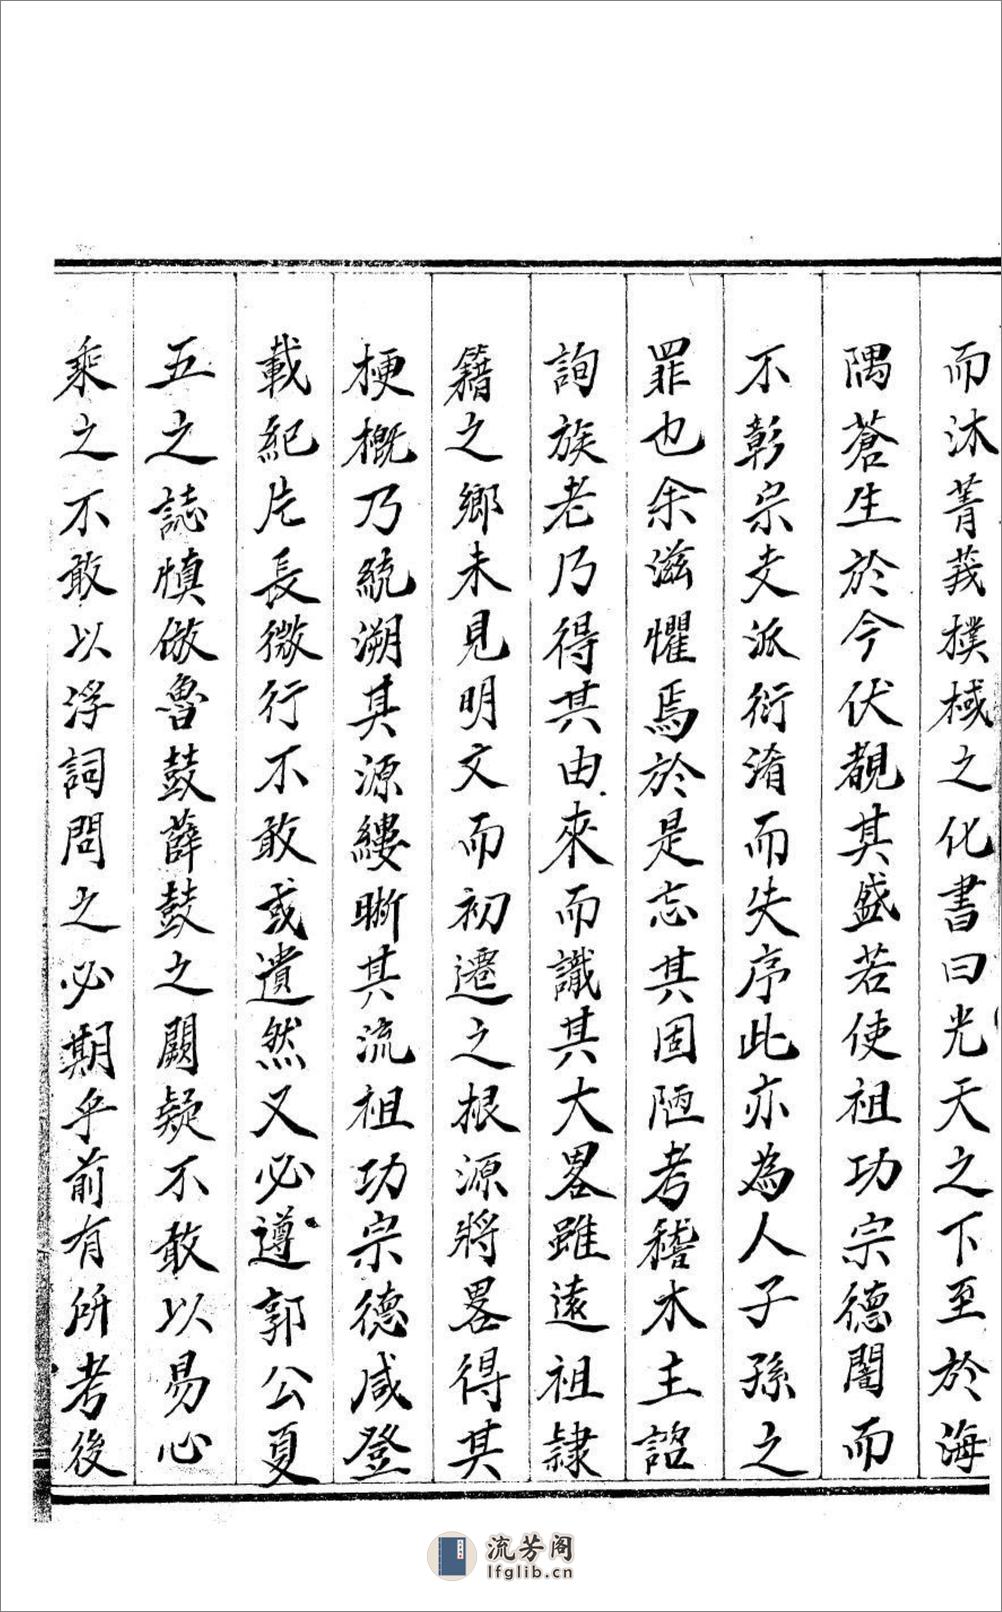 而沐菁莪樸棫之化書曰光天之下至於海
隅蒼生於今伏覩其盛若使祖功宗德闇而
不彰宗支派衍淆而失序此亦為人子孫之
罪也余滋懼焉於是忘其固陋考稽木主諮
詢族老乃得其由來而識其大畧雖遠祖隸
籍之鄉未見明文而初遷之根源將畧得其
梗概乃統溯其源縷晰其流祖功宗德咸登
載紀片長微行不敢或遺然又必遵郭公夏
五之誌慎倣魯鼓薛鼓之闕疑不敢以易心
乘之不敢以浮詞問之必期乎前有所考後
流芳阁
lfglib.cn